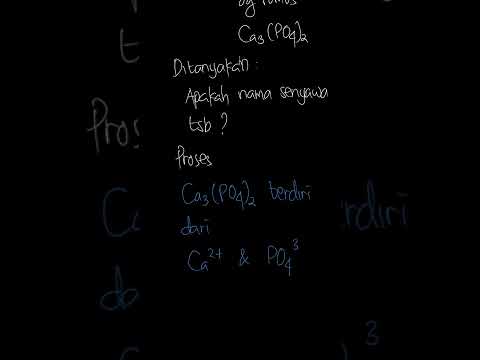 dg rumus
Ca₃(PO₄)₂
Ditanyakan :
Apakah nama senyawa
tsb ?
Proses
Ca₃(PO₄)₂ terdiri
dari
Ca²⁺ & PO₄³